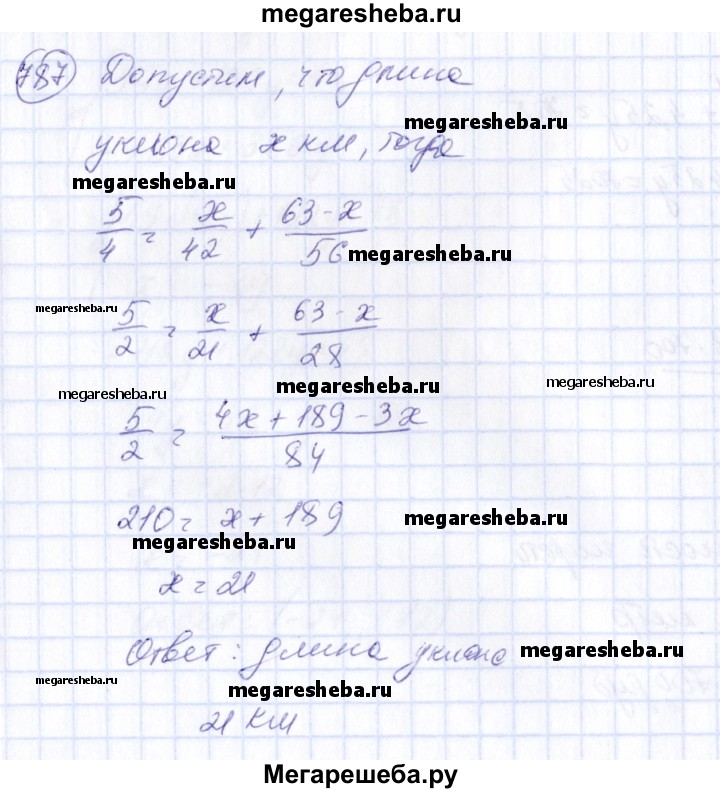 megaresheba.ru
787 Допустим, что длина
megaresheba.ru
уклона x км, тогда
megaresheba.ru
5/4 = x/42 + (63 - x)/56
megaresheba.ru
megaresheba.ru
5/2 = x/21 + (63 - x)/28
megaresheba.ru
megaresheba.ru
megaresheba.ru
5/2 = (4x + 189 - 3x)/84
210 = x + 189
megaresheba.ru
megaresheba.ru
x = 21
Ответ: длина уклона
megaresheba.ru
megaresheba.ru
megaresheba.ru
21 км
Мегарешеба.ру